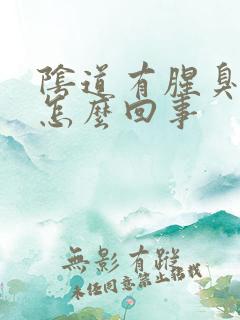 陰道有腥臭
怎麼回事
無影有蹤
未经同意禁止搭载